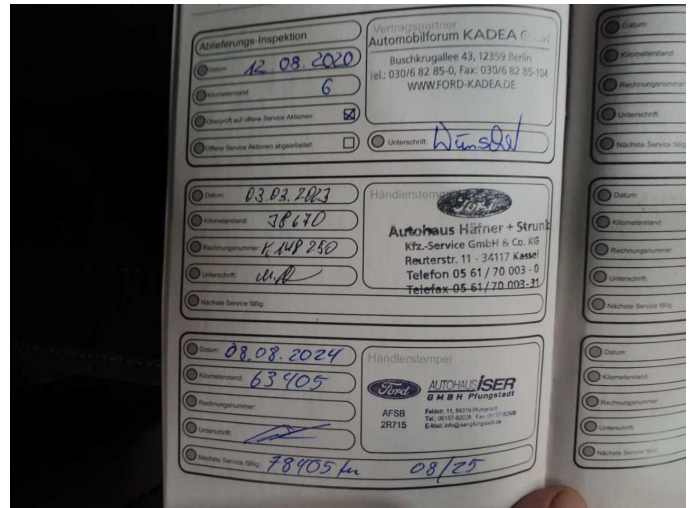 Ablieferungs-Inspektion
Datum: 12.08.2020
Kilometerstand: 6
Überprüft auf offene Service Aktionen:
Offene Service Aktionen abgearbeitet:
Vertragspartner
Automobilforum KADEA
Buschkrugallee 43, 12359 Berlin
Tel.: 030/6 82 85-0, Fax: 030/6 82 85-104
WWW.FORD-KADEA.DE
Unterschrift:
Datum: 03.03.2023
Kilometerstand: 38670
Rechnungsnummer: K 148 250
Unterschrift:
Nächste Service fällig:
Händlerstempel
Ford
Autohaus Häfner + Strunk
Kfz.-Service GmbH & Co. KG
Reuterstr. 11 - 34117 Kassel
Telefon 05 61 / 70 003 - 0
Telefax 05 61 / 70 003-31
Datum: 08.08.2024
Kilometerstand: 63405
Rechnungsnummer:
Unterschrift:
Nächste Service fällig: 78405 km 08/25
Händlerstempel
Ford
AUTOHAUS ISER
GMBH Pfungstadt
AFSB
2R715
Feldstr. 11, 64319 Pfungstadt
E-Mail: info@iser-pfungstadt.de
Datum:
Kilometerstand:
Rechnungsnummer
Unterschrift:
Nächste Service fällig
Datum:
Kilometerstand:
Rechnungsnummer
Unterschrift:
Nächste Service fällig:
Datum:
Kilometerstand:
Rechnungsnummer
Unterschrift:
Nächste Service fällig